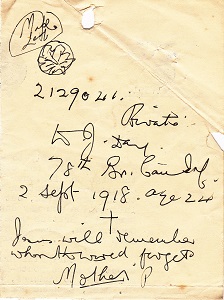 2129041.
Private
W J. Day.
78th Bn. Can. Inf.
2 Sept 1918. age 24
Jesus will remember
when the world forgets
Mother P